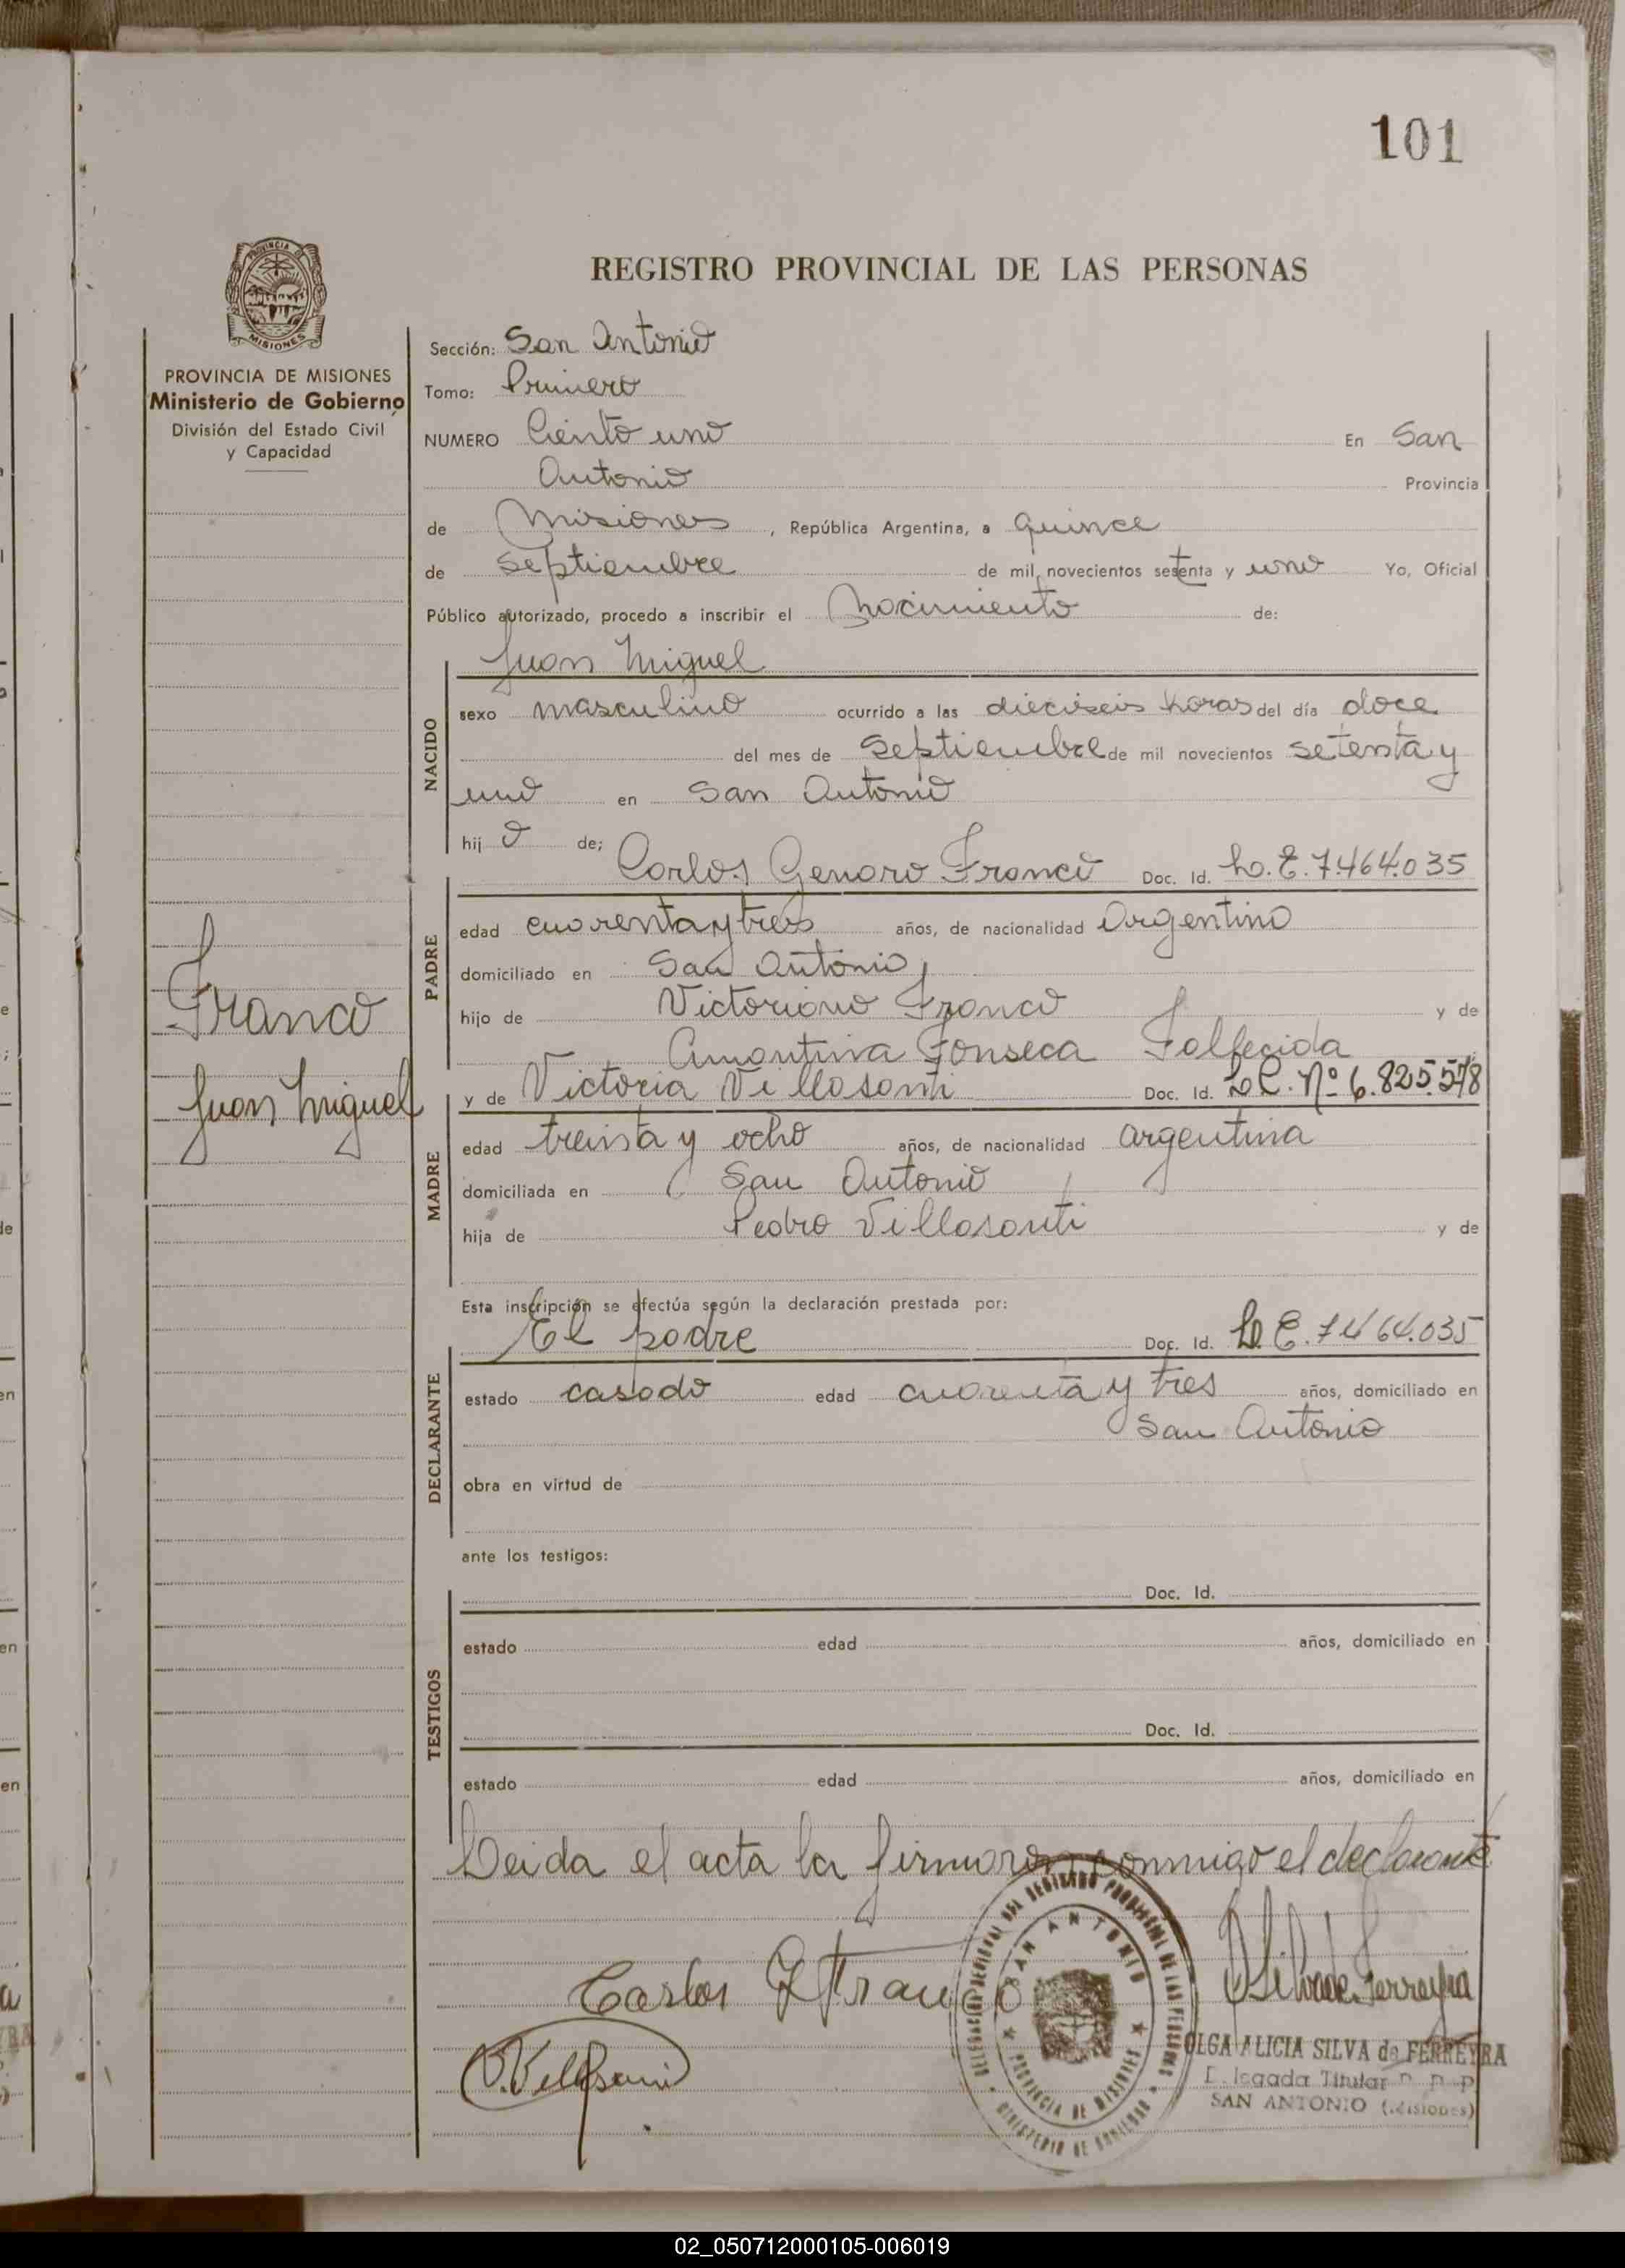 101
PROVINCIA
MISIONES
REGISTRO PROVINCIAL DE LAS PERSONAS
PROVINCIA DE MISIONES
Ministerio de Gobierno
División del Estado Civil
y Capacidad
Sección: San Antonio
Tomo: Primero
NUMERO Ciento uno En San
Antonio Provincia
de Misiones, República Argentina, a quince
de Septiembre de mil novecientos setenta y uno Yo, Oficial
Público autorizado, procedo a inscribir el Nacimiento de:
Juan Miguel
NACIDO
sexo masculino ocurrido a las dieciseis horas del día doce
del mes de Septiembre de mil novecientos setenta y
uno en San Antonio
hijo de; Carlos Genaro Franco Doc. Id. L.E. 7.464.035
PADRE
edad cuarenta y tres años, de nacionalidad Argentino
domiciliado en San Antonio,
hijo de Victoriano Franco y de
Amantina Fonseca Fallecida
Franco
Juan Miguel
MADRE
y de Victoria Villasanti Doc. Id. L.C. Nº 6.825.578
edad treinta y ocho años, de nacionalidad argentina
domiciliada en San Antonio
hija de Pedro Villasanti y de
Esta inscripción se efectúa según la declaración prestada por:
El padre Doc. Id. L.E. 7.464.035
DECLARANTE
estado casado edad cuarenta y tres años, domiciliado en
San Antonio
obra en virtud de
ante los testigos:
Doc. Id.
TESTIGOS
estado edad años, domiciliado en
Doc. Id.
estado edad años, domiciliado en
Leida el acta la firmaron conmigo el declarante
Carlos G Franco
SAN ANTONIO
PROVINCIA DE MISIONES
OLGA ALICIA SILVA de FERREYRA
SAN ANTONIO (Misiones)
02_050712000105-006019